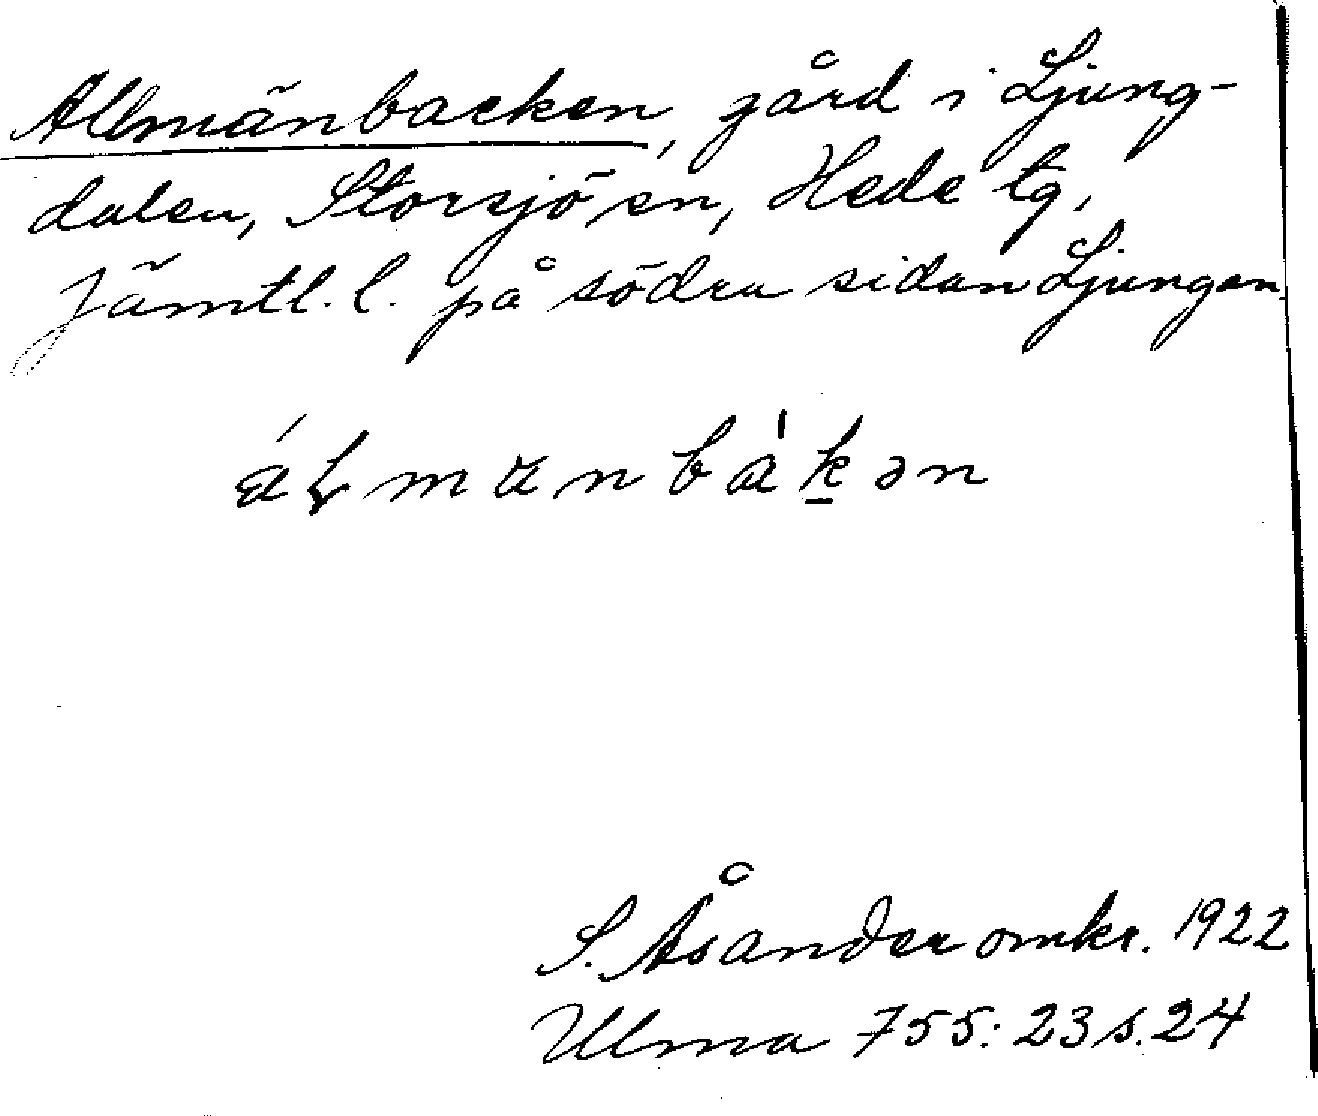 Allmänbacken, gård i Ljung-
dalen, Storsjö sn, Hede tg,
Jämtl. l. på södra sidan Ljungan.
áɽmanbàk̠ən
S. Åsander omkr. 1922
Ulma 755:23 s. 24